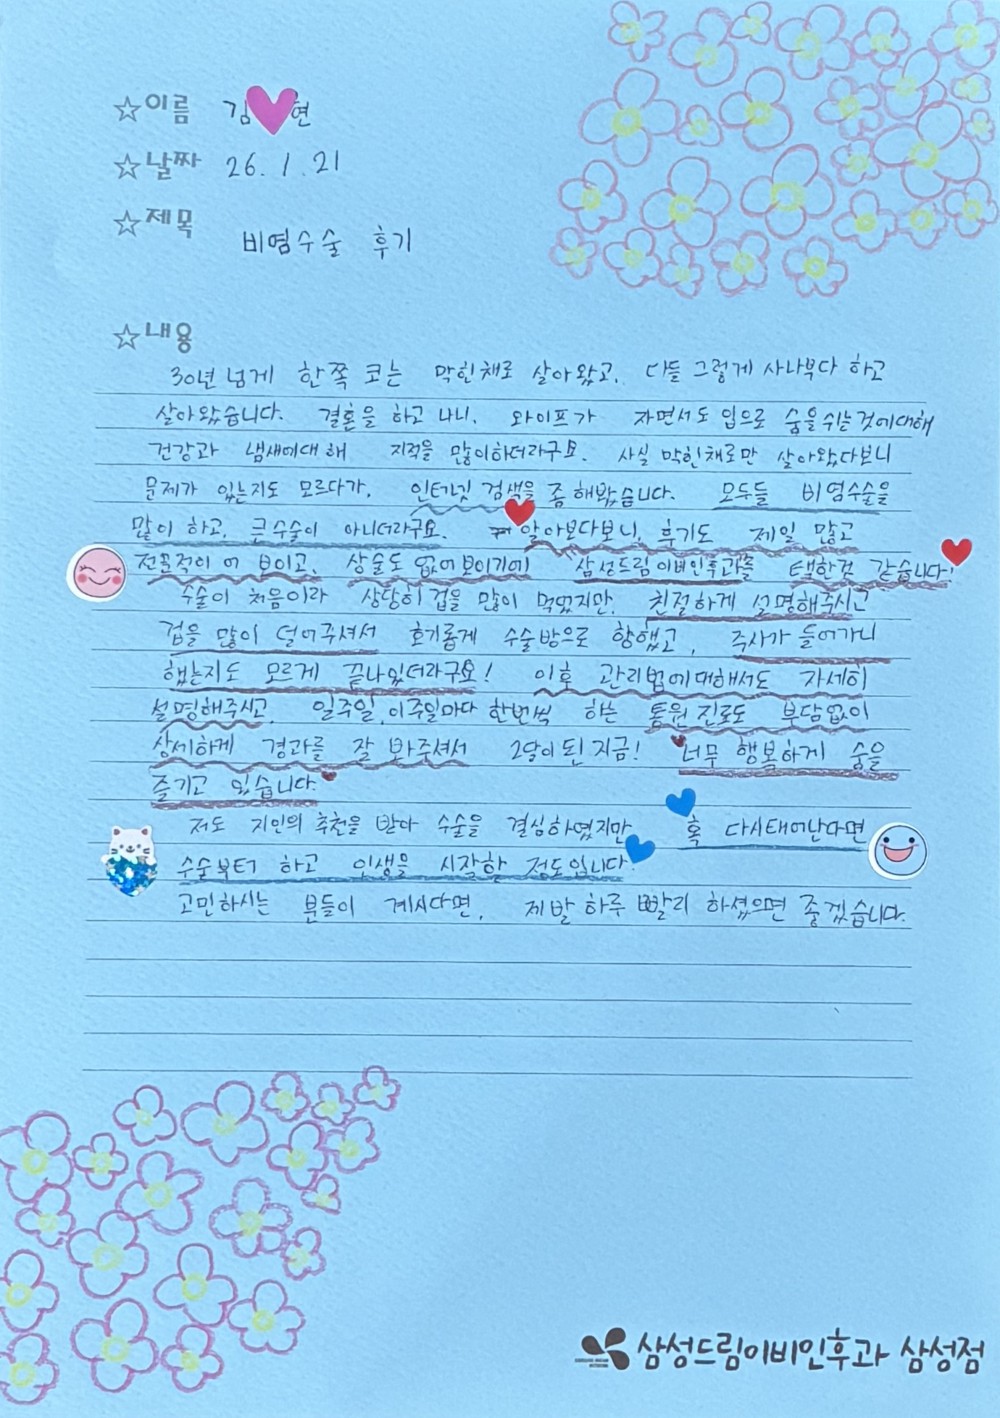 ☆이름 김♥현
☆날짜 26. 1. 21
☆제목 비염수술 후기
☆내용
30년 넘게 한쪽 코는 막힌채로 살아왔고, 다들 그렇게 사나부다 하고
살아왔습니다. 결혼을 하고 나니, 와이프가 자면서도 입으로 숨을쉬는것에대해
건강과 냄새에대해 지적을 많이하더라구요. 사실 막힌채로만 살아왔다보니
문제가 있는지도 모르다가, 인터넷 검색을 좀 해봤습니다. 모두들 비염수술을
많이 하고, 큰수술이 아니더라구요. 알아보다보니, 후기도 제일 많고
전문적이 어 보이고, 상술도 없어보이기에 삼성드림이비인후과를 택한것 같습니다!
수술이 처음이라 상당히 겁을 많이 먹었지만, 친절하게 설명해주시고
겁을 많이 덜어주셔서 호기롭게 수술방으로 향했고, 주사가 들어가니
했는지도 모르게 끝나있더라구요! 이후 관리법에대해서도 자세히
설명해주시고, 일주일, 이주일마다 한번씩 하는 통원진료도 부담없이
상세하게 경과를 잘 봐주셔서 2달이된 지금! 너무 행복하게 숨을
즐기고 있습니다.
저도 지인의 추천을 받아 수술을 결심하였지만 혹 다시태어난다면
수술부터 하고 인생을 시작할 정도입니다.
고민하시는 분들이 계시다면, 제발 하루 빨리 하셨으면 좋겠습니다.
삼성드림이비인후과 삼성점